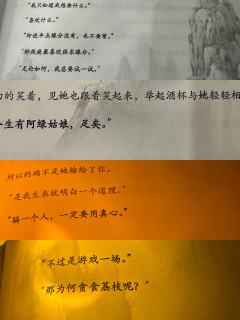 “我只知道我想要什么。”
“喜欢什么。”
“即使半点缘分没有，也不要紧。”
“柳燕庭最喜欢强求缘分。”
“无论如何，我总要试一试。”
的笑着，见她也跟着笑起来，举起酒杯与她轻轻相
生有阿绿姑娘，足矣。”
所以的确不是她输给了你。
“是我生来就明白一个道理。”
“骗一个人，一定要用真心。”
“不过是游戏一场。”
“那为何贪食荔枝呢？”